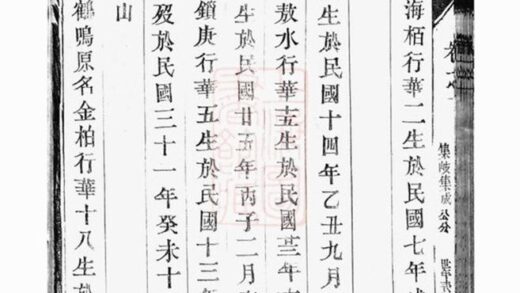 卷
集歧集成公分
海栢行華二生於民國七年
生於民國十四年乙丑九月
敖水行華十五生於民國廿三年
生於民國廿五年丙子二月
鎖庚行華五生於民國十三年
歿於民國三十一年癸未十
山
鶴鳴原名金柏行華十八生於